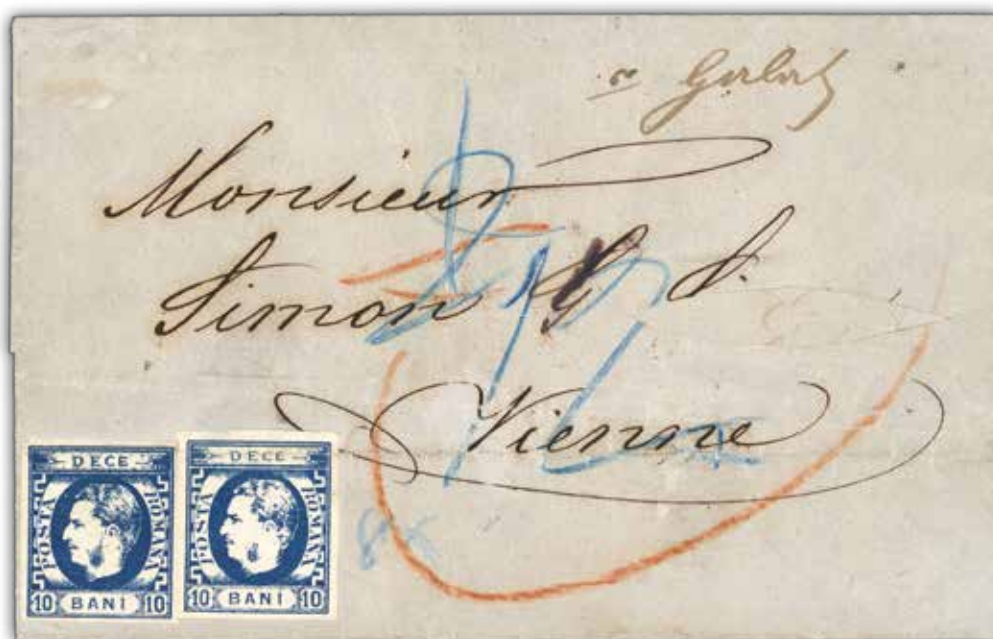 Monsieur
Simon G S.
Vienne
DECE
POSTA ROMANA
10 BANI 10
DECE
POSTA ROMANA
10 BANI 10